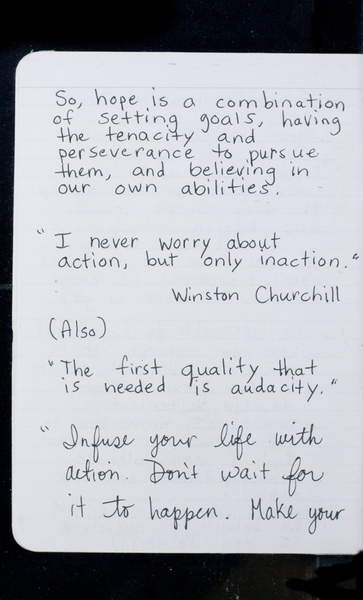 So, hope is a combination
of setting goals, having
the tenacity and
perseverance to pursue
them, and believing in
our own abilities.
"I never worry about
action, but only inaction."
Winston Churchill
(Also)
"The first quality that
is needed is audacity."
"Infuse your life with
action. Don't wait for
it to happen. Make your